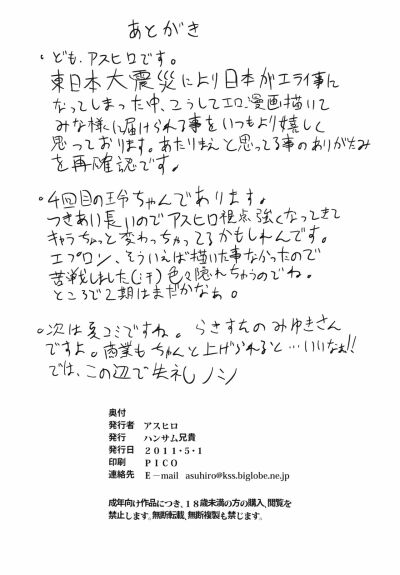 あとがき
。ども、アスヒロです。
東日本大震災により日本がエライ事に
なってしまった中、こうしてエロ漫画描いて
みな様に届けられる事をいつもより嬉しく
思っております。あたりまえと思ってる事のありがたみ
を再確認です。
。4回目の玲ちゃんであります。
つきあい長いのでアスヒロ視点強くなってきて
キャラちょっと変わっちゃってるかもしれんです。
エプロン、そういえば描いた事なかったので
苦戦しました(汗)色々隠れちゃうのでね。
ところで2期はまだかなぁ。
。次は夏コミですね。らきすたのみゆきさん
ですよ。商業もちゃんと上げられると…いいなぁ!!
では、この辺で失礼ノシ
奥付
発行者 アスヒロ
発行 ハンサム兄貴
発行日 2011・5・1
印刷 PICO
連絡先 E－mail asuhiro@kss.biglobe.ne.jp
成年向け作品につき、18歳未満の方の購入、閲覧を
禁止します。無断転載、無断複製も禁じます。